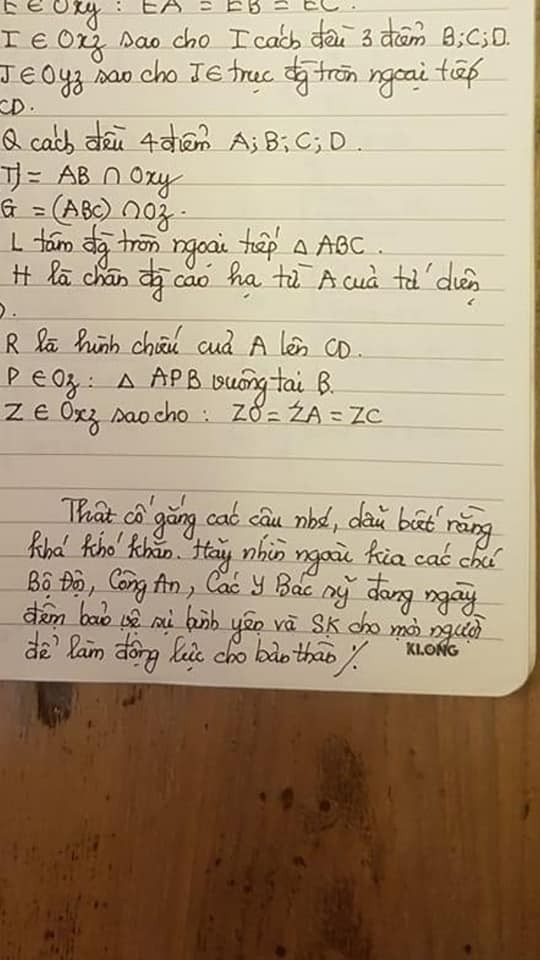 E ∈ Oxy : EA = EB = EC.
I ∈ Oxz sao cho I cách đều 3 điểm B;C;D.
J ∈ Oyz sao cho J ∈ trục đg tròn ngoại tiếp
CD.
Q cách đều 4 điểm A;B;C;D.
= AB ∩ Oxy
G = (ABC) ∩ Oz.
L tâm đg tròn ngoại tiếp Δ ABC.
H là chân đg cao hạ từ A của tứ diện
R là hình chiếu của A lên CD.
P ∈ Oz : Δ APB vuông tại B.
Z ∈ Oxz sao cho : ZO = ZA = ZC
Thật cố gắng các cậu nhé, dẫu biết rằng
khá khó khăn. Hãy nhìn ngoài kia các chú
Bộ Đội, Công An, Các Y Bác sỹ đang ngày
đêm bảo vệ sự bình yên và SK cho mọi người
để làm động lực cho bản thân %.
KLONG